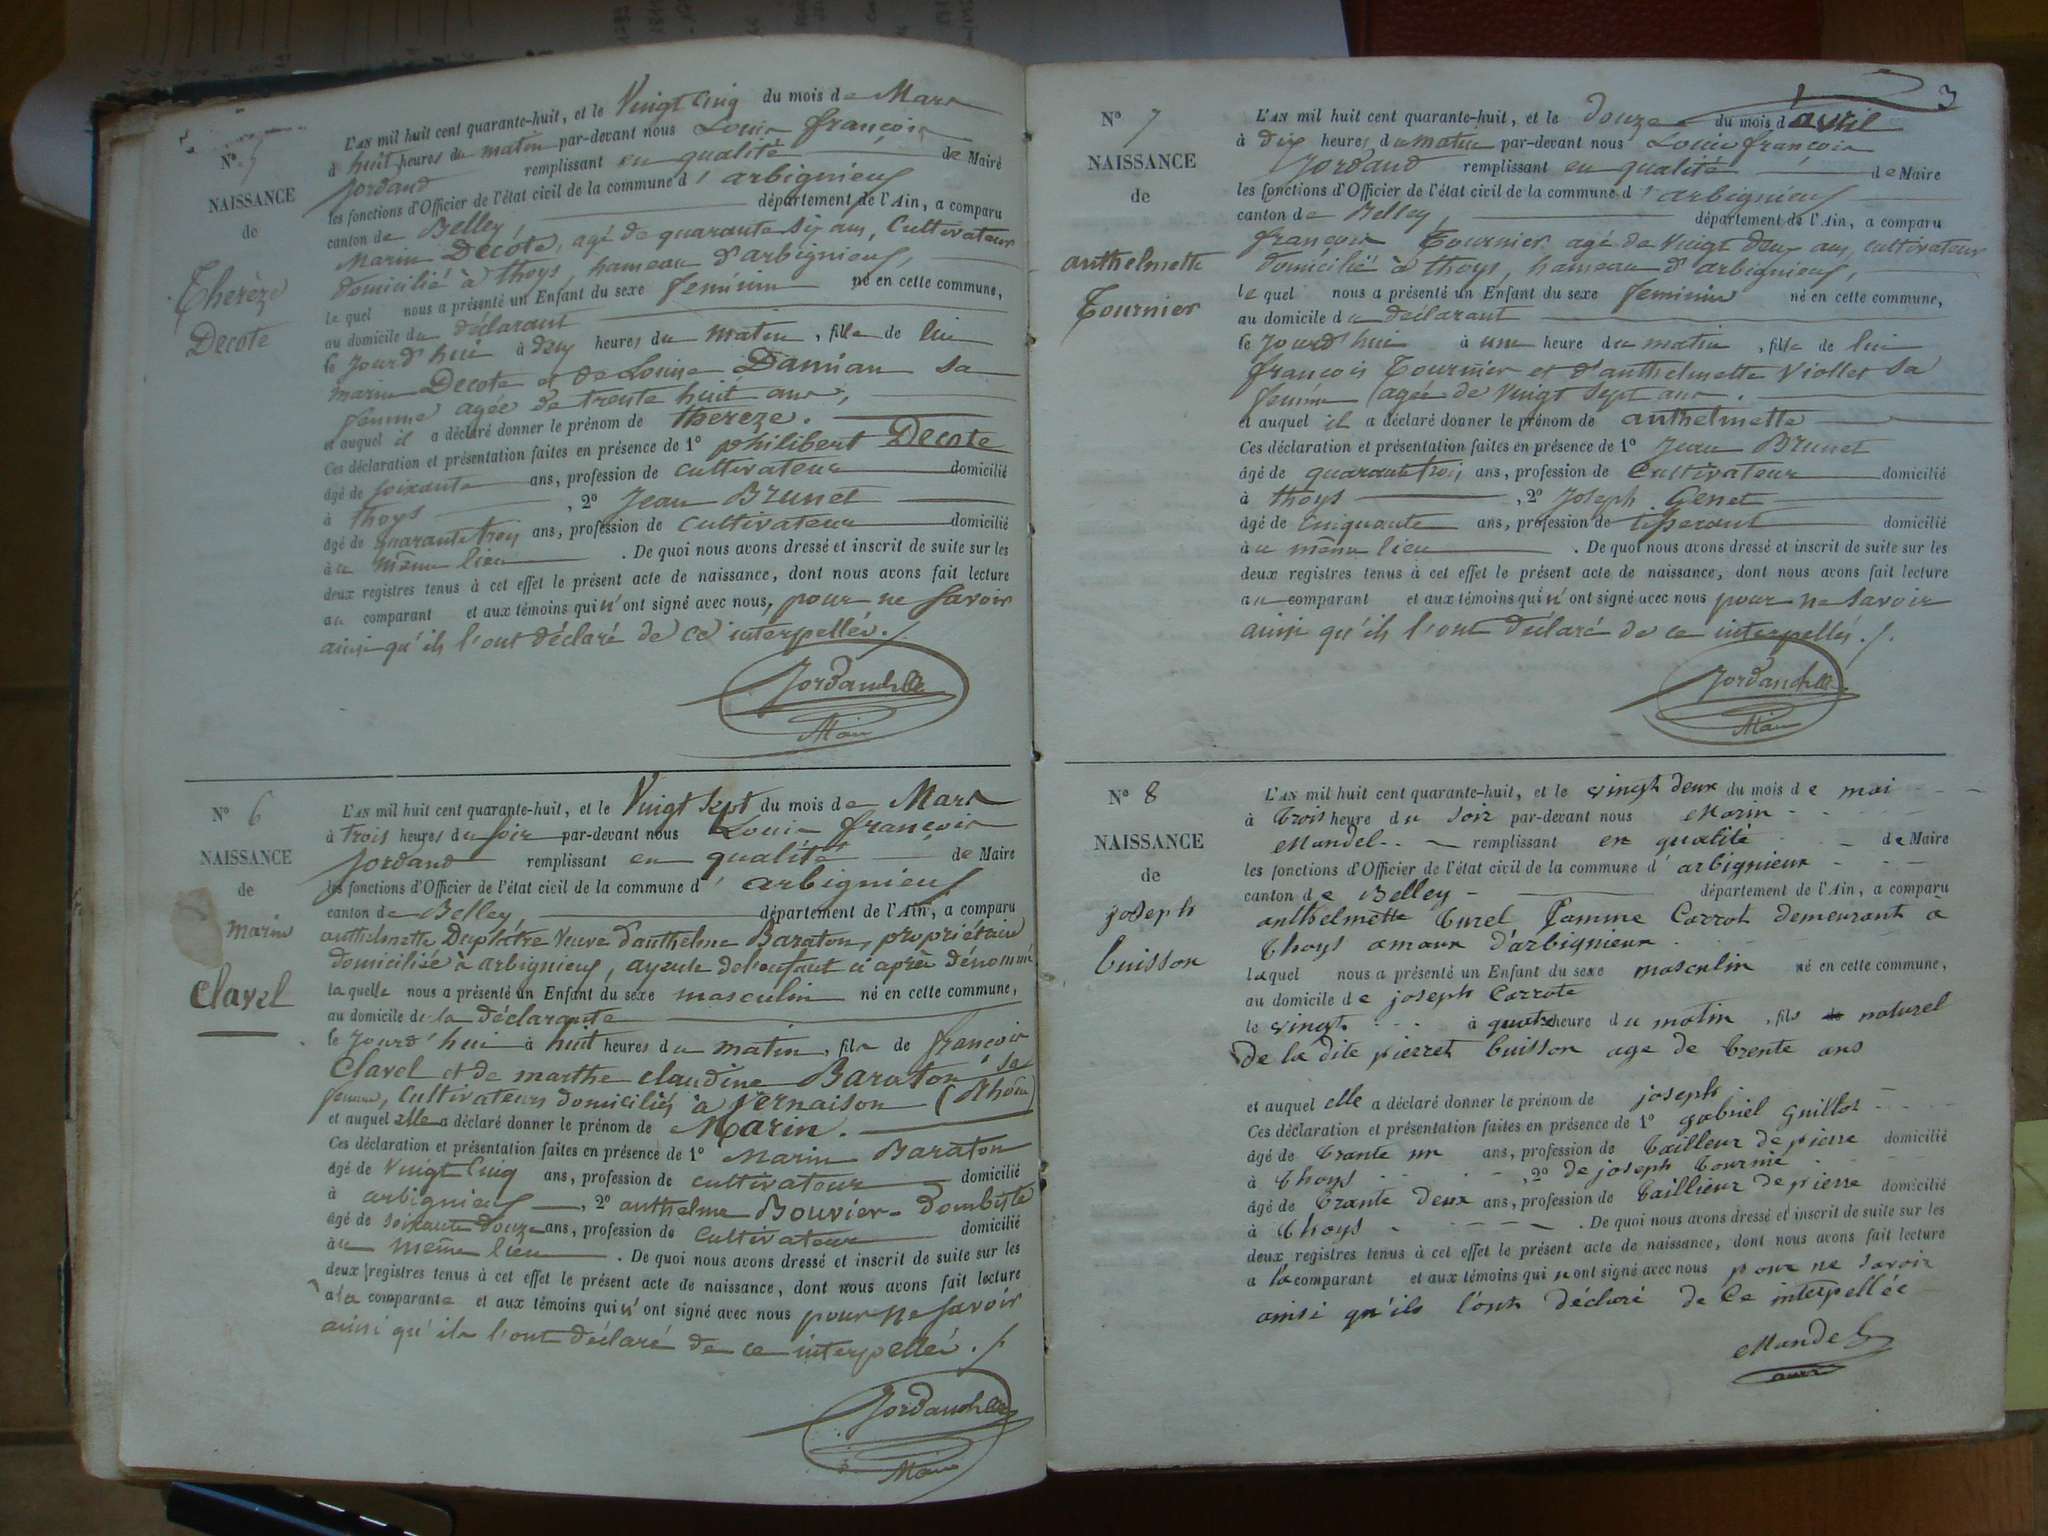 N° 5
NAISSANCE
de
Thereze
Decote
L'AN mil huit cent quarante-huit, et le Vingt Cinq du mois de Mars
à huit heures du matin par-devant nous Louis françois
Jordand remplissant en qualité de Maire
les fonctions d'Officier de l'état civil de la commune d'arbignieux
canton de Belley, département de l'Ain, a comparu
Marin Decote, agé de quarante six ans, Cultivateur
domicilié à thoys, hameau d'arbignieux,
le quel nous a présenté un Enfant du sexe feminin né en cette commune,
au domicile du déclarant
le Jourd'hui à deux heures du matin, fille de lui
marin Decote et de Louise Damian sa
femme agée de trente huit ans,
et auquel il a déclaré donner le prénom de thereze.
Ces déclaration et présentation faites en présence de 1° philibert Decote
âgé de soixante ans, profession de cultivateur domicilié
à thoys, 2° Jean Brunet
âgé de quarante trois ans, profession de cultivateur domicilié
au même lieu. De quoi nous avons dressé et inscrit de suite sur les
deux registres tenus à cet effet le présent acte de naissance, dont nous avons fait lecture
au comparant et aux témoins qui n'ont signé avec nous, pour ne savoir
ainsi qu'ils l'ont déclaré de ce interpellés./
Jordand
Maire
N° 6
NAISSANCE
de
marin
Clavel
L'AN mil huit cent quarante-huit, et le Vingt sept du mois de Mars
à trois heures du soir par-devant nous Louis françois
Jordand remplissant en qualité de Maire
les fonctions d'Officier de l'état civil de la commune d'arbignieux
canton de Belley, département de l'Ain, a comparu
anthelmette Duplâtre Veuve d'anthelme Baraton, propriétaire
domiciliée à arbignieux, ayeule de l'enfant ci après dénommé
la quelle nous a présenté un Enfant du sexe masculin né en cette commune,
au domicile de la déclarante
le Jourd'hui à huit heures du matin, fils de françois
Clavel et de marthe claudine Baraton sa
femme, Cultivateurs domiciliés à Vernaison (Rhône)
et auquel elle a déclaré donner le prénom de Marin.
Ces déclaration et présentation faites en présence de 1° Marin Baraton
âgé de Vingt Cinq ans, profession de cultivateur domicilié
à arbignieux, 2° anthelme Bouvier-Dombiste
âgé de soixante douze ans, profession de Cultivateur domicilié
au même lieu. De quoi nous avons dressé et inscrit de suite sur les
deux registres tenus à cet effet le présent acte de naissance, dont nous avons fait lecture
a la comparante et aux témoins qui n'ont signé avec nous pour ne savoir
ainsi qu'ils l'ont déclaré de ce interpellés./
Jordand
Maire
3
N° 7
NAISSANCE
de
anthelmette
Tournier
L'AN mil huit cent quarante-huit, et le douze du mois d'avril
à dix heures du matin par-devant nous Louis françois
Jordand remplissant en qualité de Maire
les fonctions d'Officier de l'état civil de la commune d'arbignieux
canton de Belley, département de l'Ain, a comparu
françois Tournier agé de Vingt deux ans, cultivateur
domicilié à thoys, hameau d'arbignieux,
le quel nous a présenté un Enfant du sexe feminin né en cette commune,
au domicile du declarant
le Jourd'hui à une heure du matin, fille de lui
francois Tournier et d'anthelmette Viollet sa
femme agée de Vingt sept ans.
et auquel il a déclaré donner le prénom de anthelmette
Ces déclaration et présentation faites en présence de 1° Jean Brunet
âgé de quarante trois ans, profession de Cultivateur domicilié
à thoys, 2° Joseph Genet
âgé de cinquante ans, profession de tisserant domicilié
au même lieu. De quoi nous avons dressé et inscrit de suite sur les
deux registres tenus à cet effet le présent acte de naissance, dont nous avons fait lecture
au comparant et aux témoins qui n'ont signé avec nous pour ne savoir
ainsi qu'ils l'ont déclaré de ce interpellés./.
Jordand
Maire
N° 8
NAISSANCE
de
joseph
buisson
L'AN mil huit cent quarante-huit, et le vingt deux du mois de mai
à trois heure du soir par-devant nous Marin
Mandel remplissant en qualité de Maire
les fonctions d'Officier de l'état civil de la commune d'arbignieux
canton de Belley département de l'Ain, a comparu
anthelmette turel famme Carrot demeurant à
thoys amaux d'arbignieux
laquel nous a présenté un Enfant du sexe masculin né en cette commune,
au domicile de joseph Carrote
le vingt à quatre heure du matin, fils naturel
de la dite pierret buisson age de trente ans
et auquel elle a déclaré donner le prénom de joseph
Ces déclaration et présentation faites en présence de 1° gabriel guillot
âgé de trante un ans, profession de tailleur de pierre domicilié
à thoys, 2° de joseph tournié
âgé de trante deux ans, profession de taillieur de pierre domicilié
à thoys. De quoi nous avons dressé et inscrit de suite sur les
deux registres tenus à cet effet le présent acte de naissance, dont nous avons fait lecture
a la comparant et aux témoins qui n ont signé avec nous pour ne savoir
ainsi qu'ils l'ont déclaré de ce interpellée
Mandel